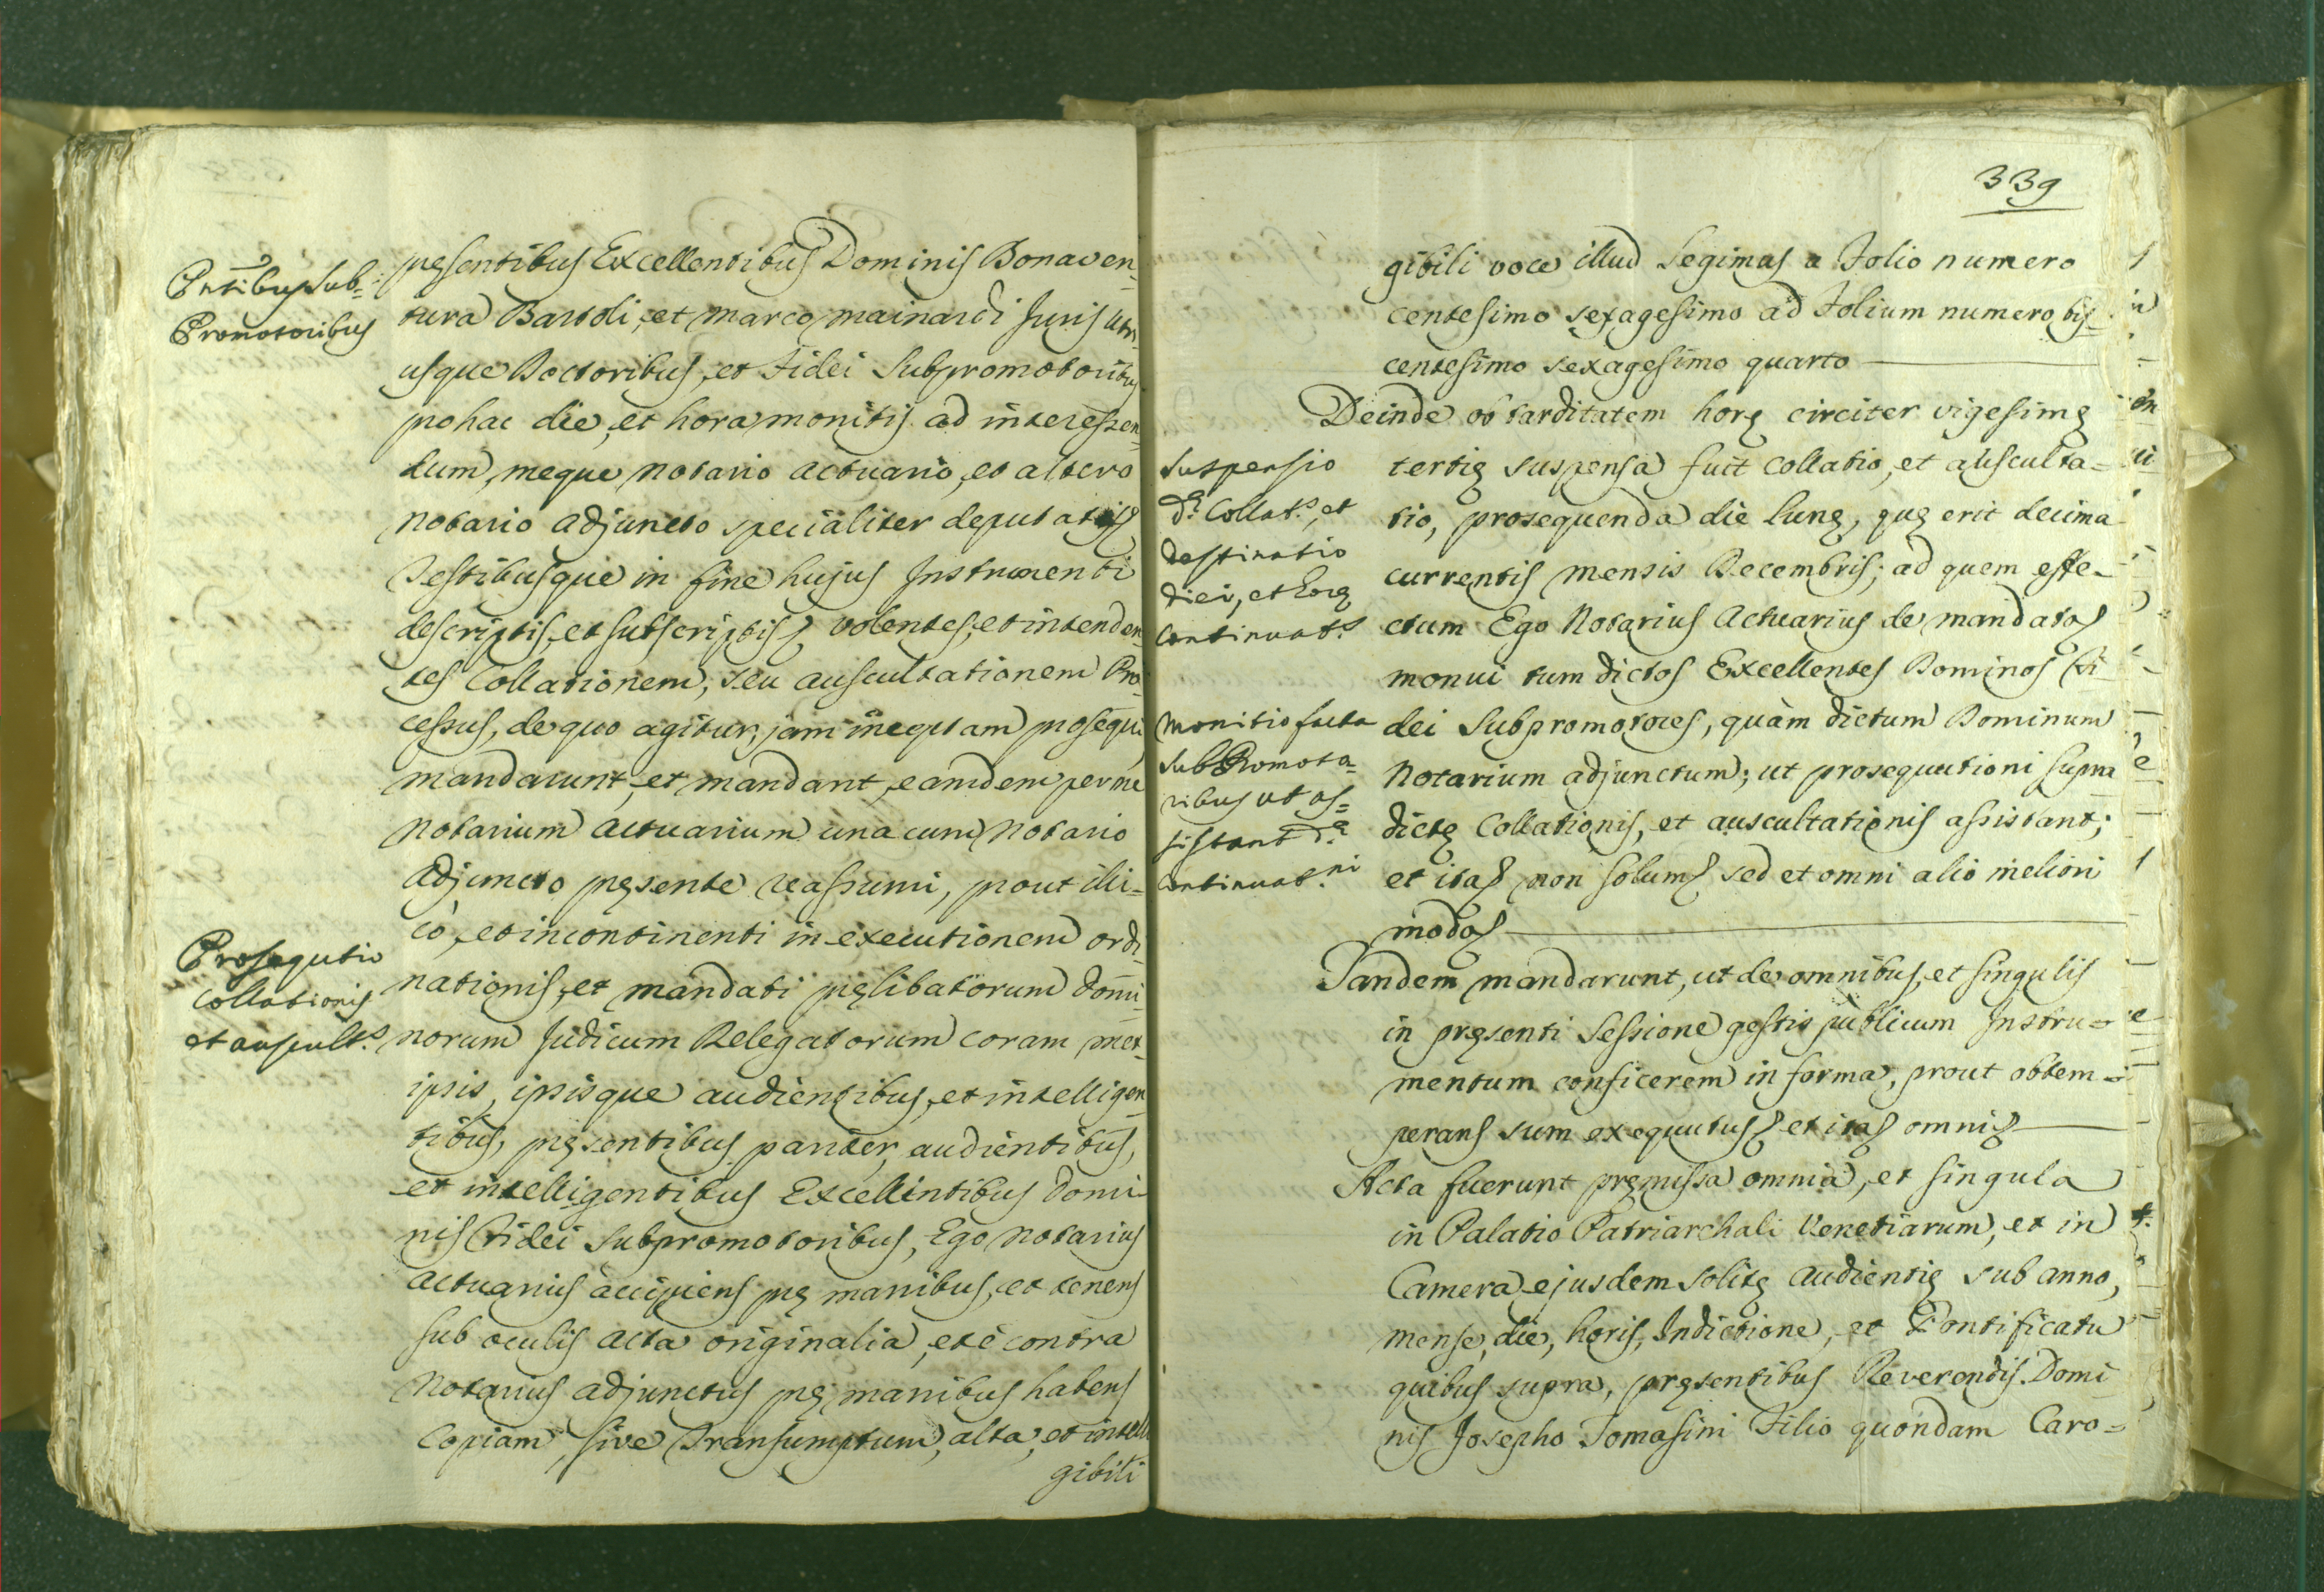 Pntibus sub=
Promotoribus
pręsentibus Excellentibus Dominis Bonaven=
tura Bartoli, et Marco Mainardi Juris utri
usque Doctoribus, et Fidei Subpromotoribus
pro hac die, et hora monitis ad interessen=
dum, meque Notario Actuario, et altero
Notario Adjuncto specialiter deputatis
Testibusque in fine hujus Instrumenti
descriptis, et subscriptis volentes, et intenden
tes Collationem, seu auscultationem Pro=
cessus, de quo agitur, jam inceptam prosequi
mandarunt, et mandant, eamdem per me
Notarium Actuarium una cum Notario
Adjuncto pręsente reassumi, prout illi=
Prosequtio
Collationis
et auscult.^s
cò, et incontinenti in executionem ordi
nationis, et mandati pręlibatorum Domi
norum Judicum Delegatorum coram met=
ipsis, ipsisque audientibus, et intelligen=
tibus, pręsentibus pariter, audientibus,
et intelligentibus Excellentibus Domi=
nis Fidei Subpromotoribus, Ego Notarius
Actuarius accipiens prę manibus, et tenens
sub oculis Acta originalia, et è contra
Notarius Adjunctus prę manibus habens
Copiam, sive Transumptum, alta, et intelli
gibili
339
gibili voce illud legimus a Folio numero
centesimo sexagesimo ad Folium numero bis=
centesimo sexagesimo quarto
Deinde ob tarditatem horę circiter vigesimę
Suspensio
d.ę Collat.s, et
destinatio
diei, et horę
continuat.s
tertię suspensa fuit Collatio, et ausculta=
tio, prosequenda die Lunę, quę erit decima
currentis mensis Decembris; ad quem effe=
ctum Ego Notarius Actuarius de mandato
monui tum dictos Excellentes Dominos Fi
Monitio facta
SubPromoto=
ribus ut as=
sistant d.ę
continuat.ni
dei Subpromotores, quàm dictum Dominum
Notarium adjunctum; ut prosequutioni supra
dictę Collationis, et auscultationis assistant;
et ita non solum sed et omni alio meliori
modo
Tandem mandarunt, ut de omnibus, et singulis
in pręsenti Sessione gestis publicum Instru=
mentum conficerem in forma, prout obtem=
perans sum exequutus et ita omni
Acta fuerunt pręmissa omnia, et singula
in Palatio Patriarchali Venetiarum, et in
Camera ejusdem solitę Audientię sub anno,
mense, die, horis, Indictione, et Pontificatu
quibus supra, pręsentibus Reverendis. Domi
nis Josepho Tomasini Filio quondam Caro=